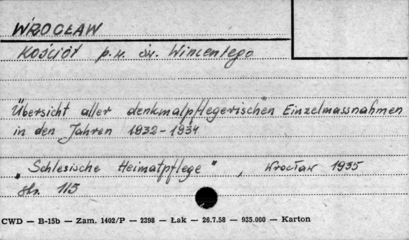 WROCŁAW
Kościół p.w. św. Wincentego
Übersicht aller denkmalpflegerischen Einzelmassnahmen
in den Jahren 1932-1934
„Schlesische Heimatpflege", Wrocław 1935
str. 115
CWD — B-15b — Zam. 1402/P — 2398 — Łak — 26.7.58 — 935.000 — Karton